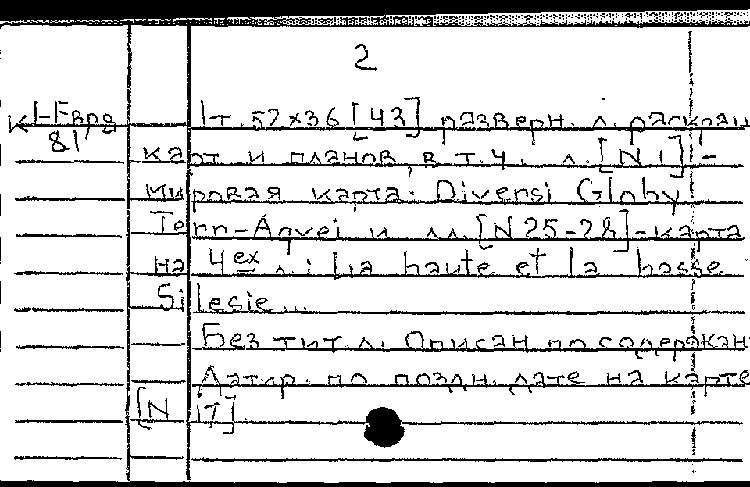 2
К 1-Евра 1т. 52х36 [43] разверн. л. раскраш
81 карт и планов, в т.ч. л. [N 1] -
мировая карта: Diversi Globy
Terr-Aqvei и лл. [N 25-28]-карта
на 4ех л.: La haute et la basse
Silesie...
Без тит. л. Описан по содержан
Датир. по поздн. дате на карте
[N 17].